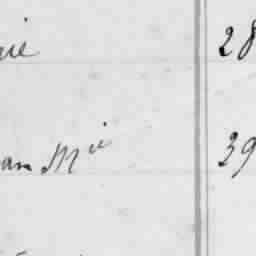 rie 28
an Mie 39